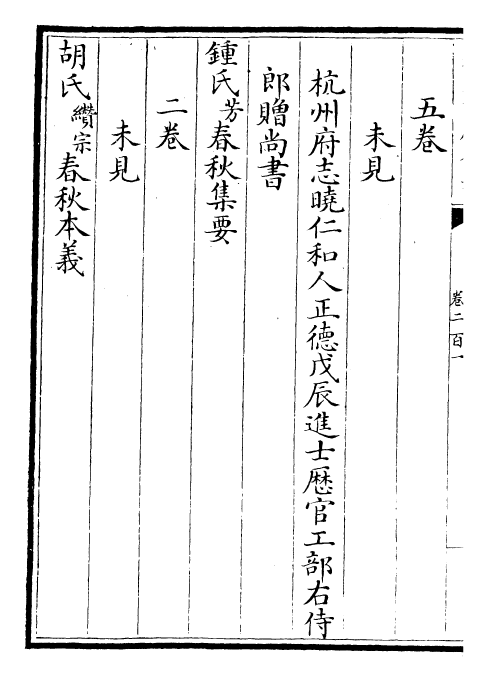 五卷
未見
杭州府志曉仁和人正德戊辰進士歷官工部右侍
郎贈尚書
鍾氏芳春秋集要
二卷
未見
胡氏纘宗春秋本義
卷二百一